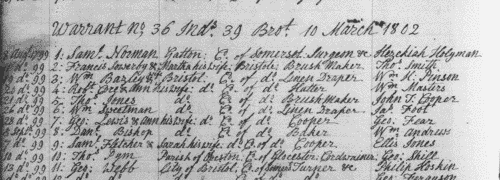 Warrant no. 36 Indrs. 39 Brot. 10 March 1802
Augt 99 1: Saml. Norman Yatton Co. of Somerset Surgeon & Hezekiah Holyman
do. 99 2: Francis & Martha his wife Bristol Brush Maker Thos. Smith
do. 99 3: Wm. Bristol Co. of do. Linen Draper Wm. K. Pinson
do. 99 4: Robt. & Ann his wife do. Co. of do. Hatter Wm. Masters
do. 99 5: Thos. Jones do. Co. of do. Brush Maker John T. Cooper
do. 99 6: Wm. Sweetman do. Co. of do. Linen Draper Jas. Foot
do. 99 7: Geo. Lewis & Ann his wife do. Co. of do. Cooper Geo. Fear
Sept. 99 8: Danl. Bishop do. Co. of do. Baker Wm. Andrews
7 do. 99 9: Saml. Fletcher & Sarah his wife do. Co. of do. Cooper Ellis Jones
10 do. 99 10: Thos. Pym Parish of Co. of Glocester Cordwainer Geo. Shill
13 do. 99 11: Geo. Webb City of Bristol Co. of same Turner & Philip Hoskin
Geo. Ferguson